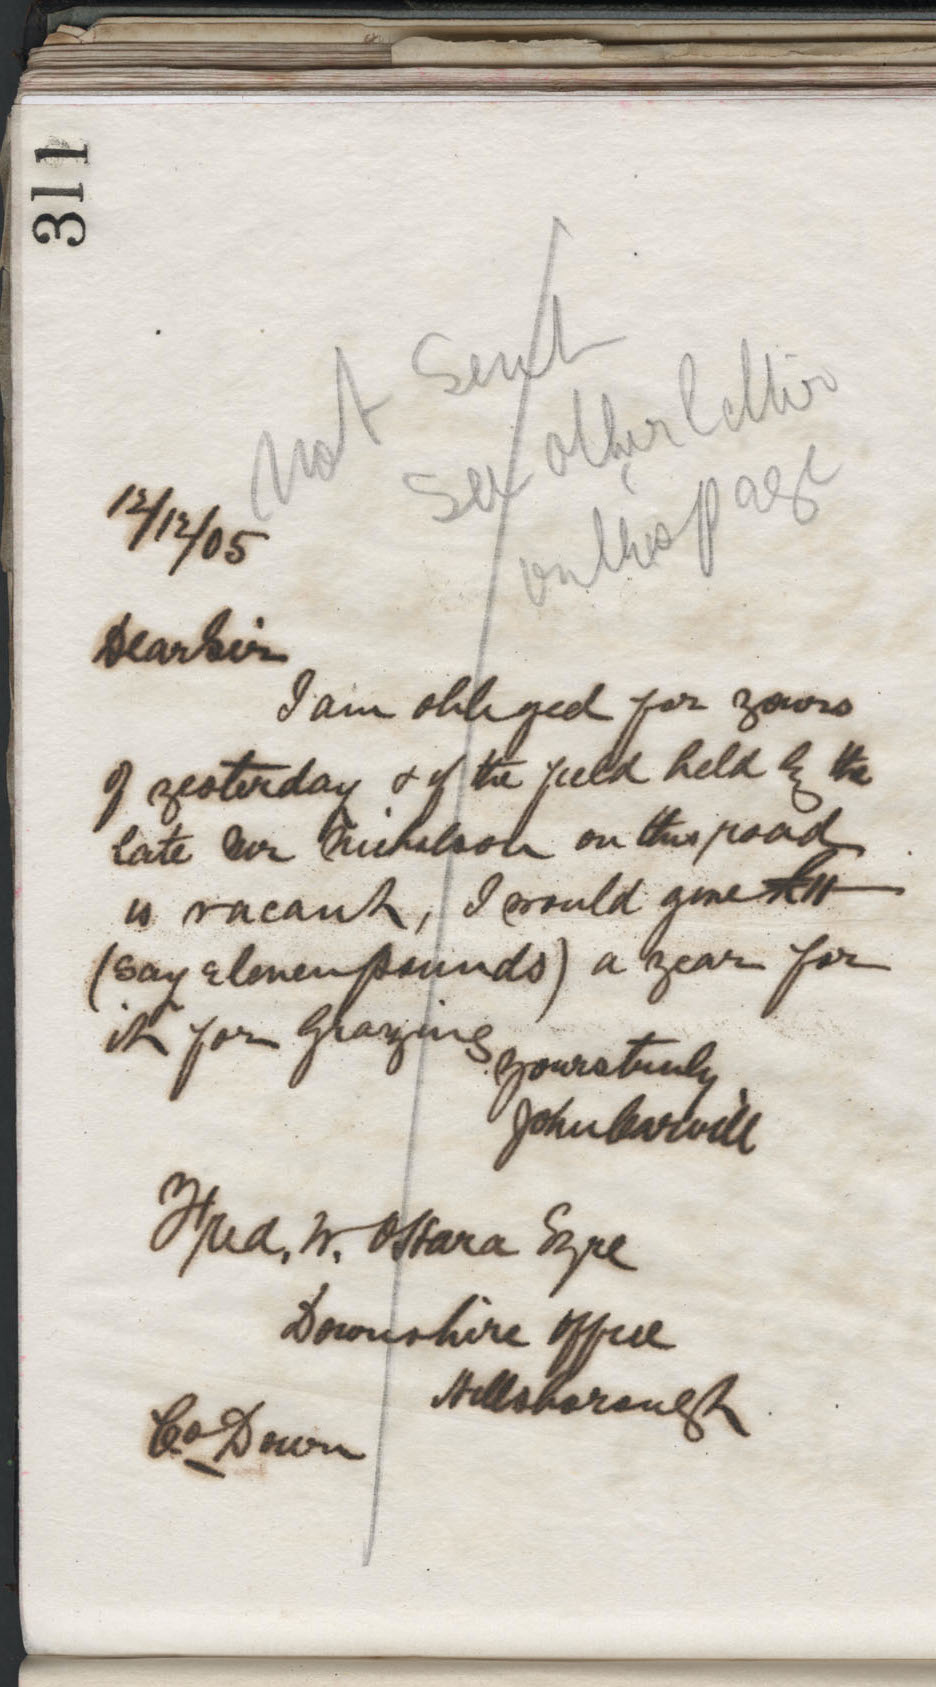 311
Not Sent
See other letter
on this page
12/12/05
Dear Sir
I am obliged for yours
of yesterday & if the field held by the
late Mr Nicholson on this road
is vacant, I would give £11
(say eleven pounds) a year for
it for Grazing
Yours truly
John Carvill
Fred. W. O'Hara Esqre
Downshire Office
Hillsborough
Co Down